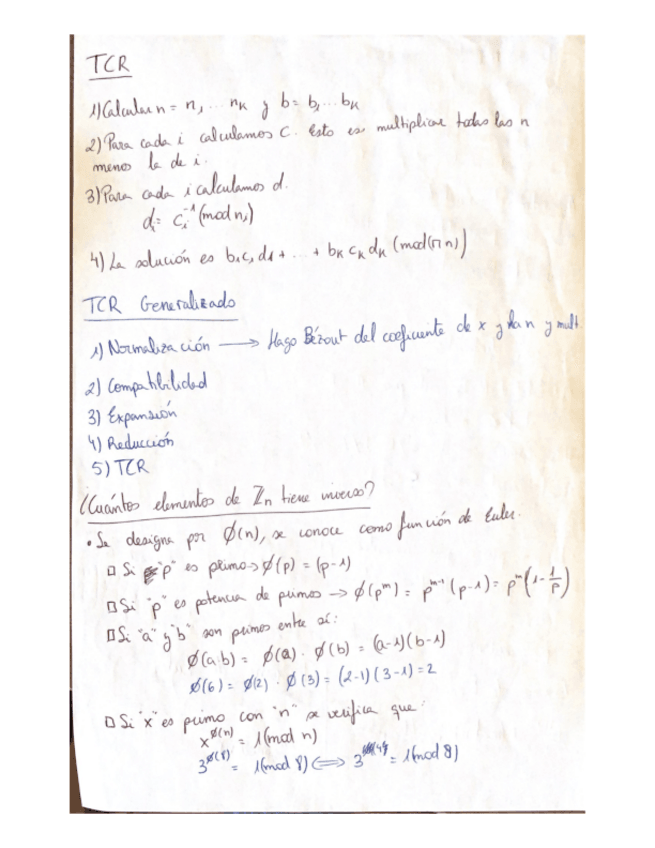 TCR
1) Calcular n = n₁ ... nₖ y b = b₁ ... bₖ
2) Para cada i calculamos C. Esto es multiplicar todas las n
menos la de i.
3) Para cada i calculamos d.
dᵢ = cᵢ⁻¹ (mod nᵢ)
4) La solución es b₁c₁d₁ + ... + bₖcₖdₖ (mod(Πn))
TCR Generalizado
1) Normalización → Hago Bézout del coeficiente de x y la n y mult.
2) Compatibilidad
3) Expansión
4) Reducción
5) TCR
¿Cuántos elementos de ℤₙ tiene inverso?
• Se designa por Ø(n), se conoce como función de Euler.
□ Si "p" es primo → Ø(p) = (p-1)
□ Si "p" es potencia de primos → Ø(pᵐ) = pᵐ⁻¹(p-1) = pᵐ(1-1/p)
□ Si "a" y "b" son primos entre sí:
Ø(a·b) = Ø(a) · Ø(b) = (a-1)(b-1)
Ø(6) = Ø(2) · Ø(3) = (2-1)(3-1) = 2
□ Si "x" es primo con "n" se verifica que:
x^Ø(n) = 1 (mod n)
3^Ø(8) = 1 (mod 8) ⟺ 3^4 = 1 (mod 8)